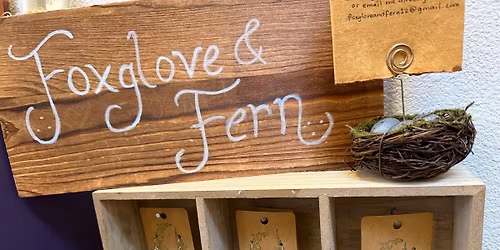 Foxglove &
Fern
or email me
foxgloveandfern22@gmail.com